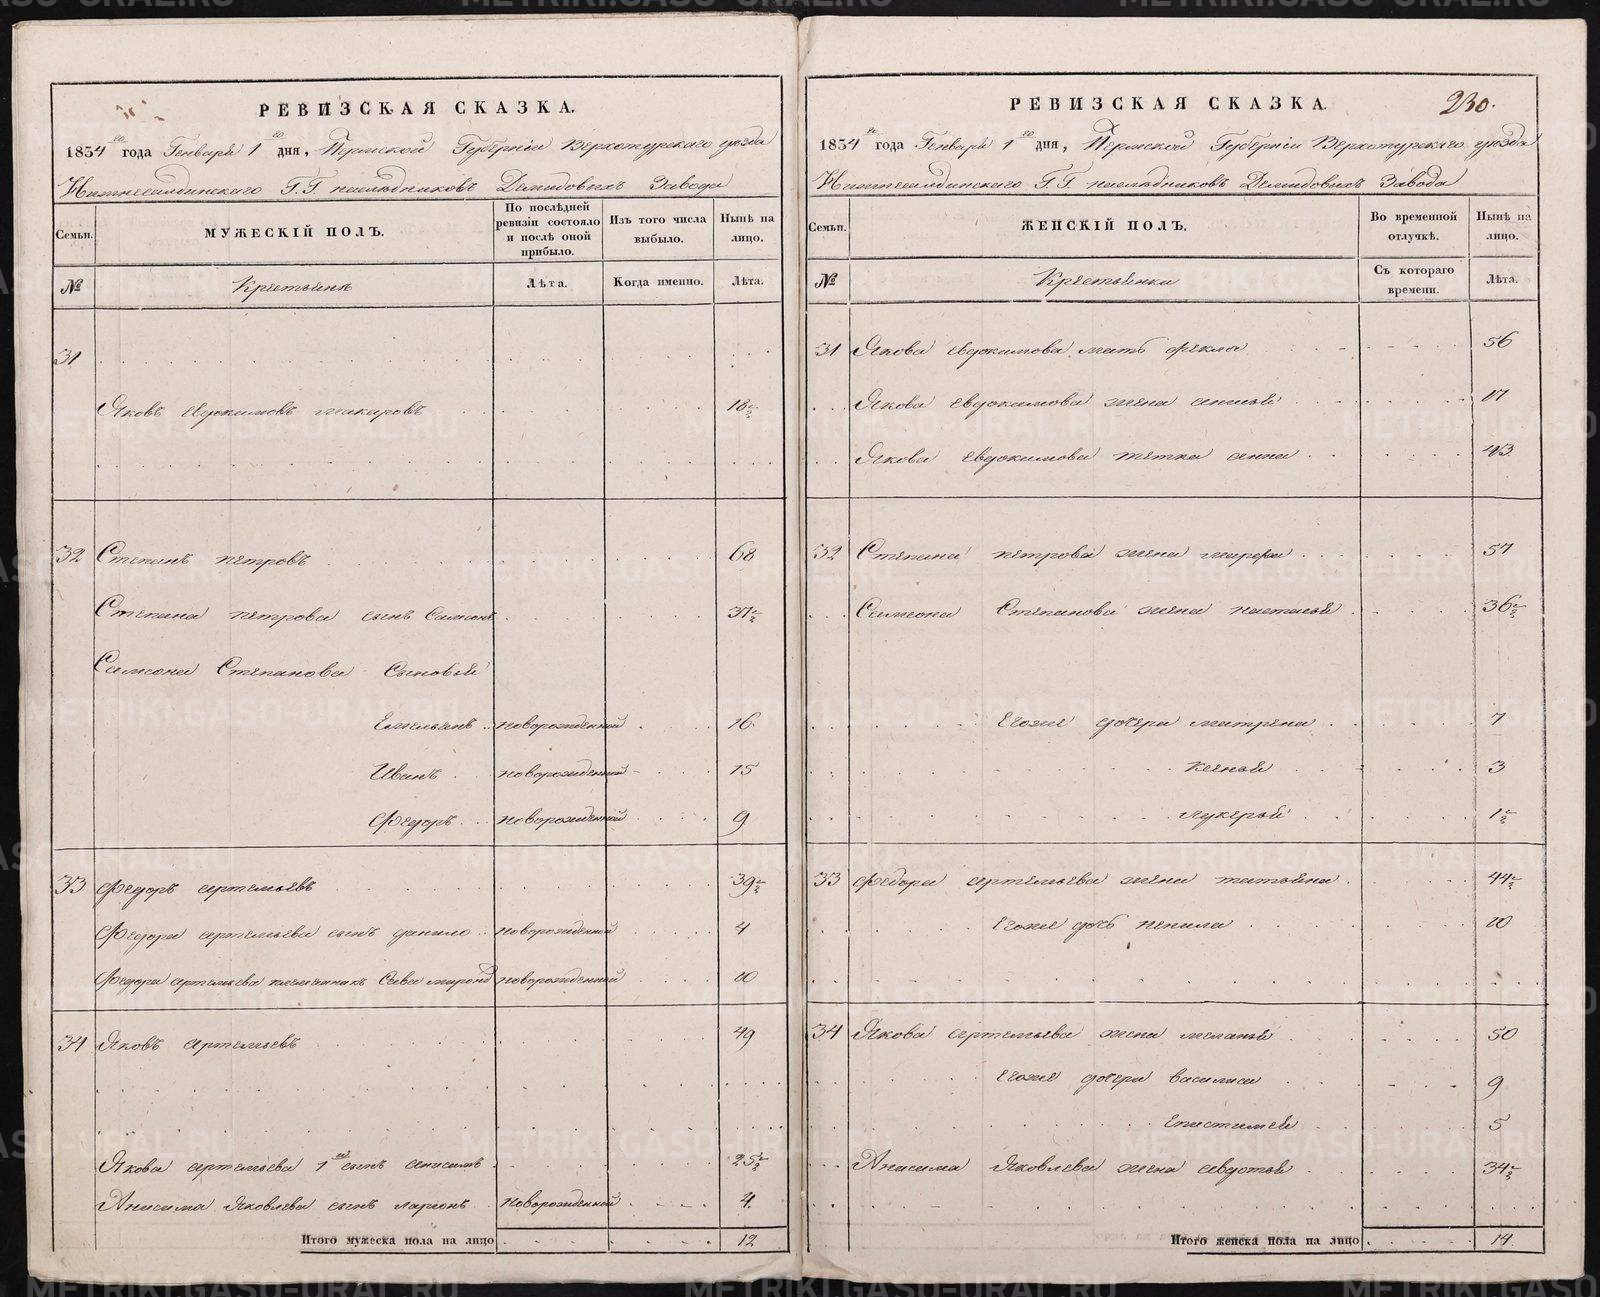 РЕВИЗСКАЯ СКАЗКА.
1834го года Генваря 1го дня, Пермской Губернiи Верхотурскаго уѣзда
Нижнесалдинскаго Г.Г. наслѣдниковъ Демидовыхъ Завода
Семьи.
МУЖЕСКIЙ ПОЛЪ.
По послѣдней ревизiи состояло и послѣ оной прибыло.
Изъ того числа выбыло.
Нынѣ на лицо.
№
Крестьянъ
Лѣта.
Когда именно.
Лѣта.
31
Яковъ Евдокимовъ Макаровъ 18½
32 Степанъ Петровъ 68
Степана Петрова сынъ Самсонъ 37½
Самсона Степанова Сыновья
Емельянъ новорожденной 16
Иванъ новорожденной 15
Федоръ новорожденной 9
33 Федоръ Артемьевъ 39½
Федора Артемьева сынъ Данило новорожденной 4
Федора Артемьева племянникъ Сава новорожденной 10
34 Яковъ Артемьевъ 49
Якова Артемьева 1й сынъ Анисимъ 25½
Анисима Яковлева сынъ Ларионъ новорожденной 4
Итого мужеска пола на лицо 12
РЕВИЗСКАЯ СКАЗКА.
230.
1834го года Генваря 1го дня, Пермской Губернiи Верхотурскаго уѣзда
Нижнесалдинскаго Г.Г. наслѣдниковъ Демидовыхъ Завода
Семьи.
ЖЕНСКIЙ ПОЛЪ.
Во временной отлучкѣ.
Нынѣ на лицо.
№
Крестьянки
Съ котораго времени.
Лѣта.
31 Якова Евдокимова мать Фекла 56
Якова Евдокимова жена 17
Якова Евдокимова тетка Анна 43
32 Степана Петрова жена Марфа 57
Самсона Степанова жена Наталья 36½
Егоже дочери Матрена 7
Ксенья 3
Лукерья 1½
33 Федора Артемьева жена Татьяна 44½
Егоже дочь Ненила 10
34 Якова Артемьева жена Меланья 50
Егоже дочери Василиса 9
Епистимея 5
Анисима Яковлева жена Авдотья 34½
Итого женска пола на лицо 14.
METRIKI.GASO-URAL.RU